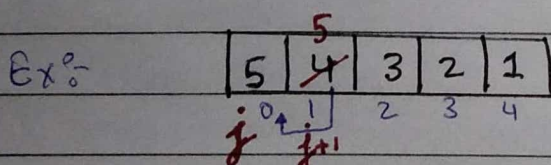 5
Ex:- 5 4 3 2 1
0 1 2 3 4
j j+1